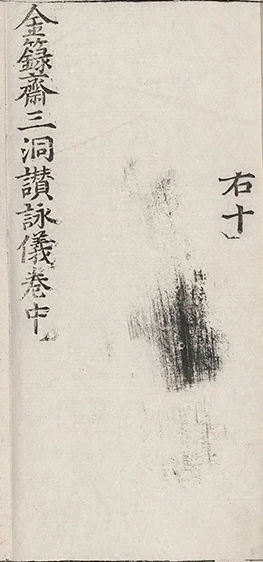 右十
金籙齋三洞讃詠儀卷中